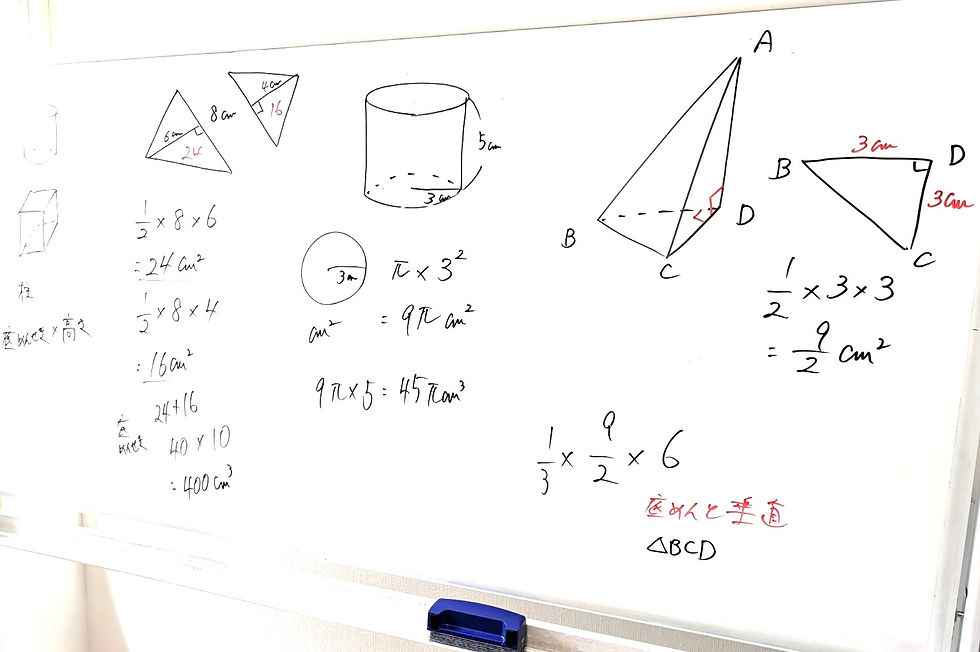 柱
底めんせき×高さ
6cm
24
8cm
4cm
16
1/2 × 8 × 6
= 24cm²
1/2 × 8 × 4
= 16cm²
24+16
底めんせき
40 × 10
= 400cm³
5cm
3cm
3cm
π × 3²
cm²
= 9πcm²
9π×5=45πcm³
A
B
C
D
B
3cm
D
3cm
C
1/2 × 3 × 3
= 9/2 cm²
1/3 × 9/2 × 6
底めんと垂直
△BCD